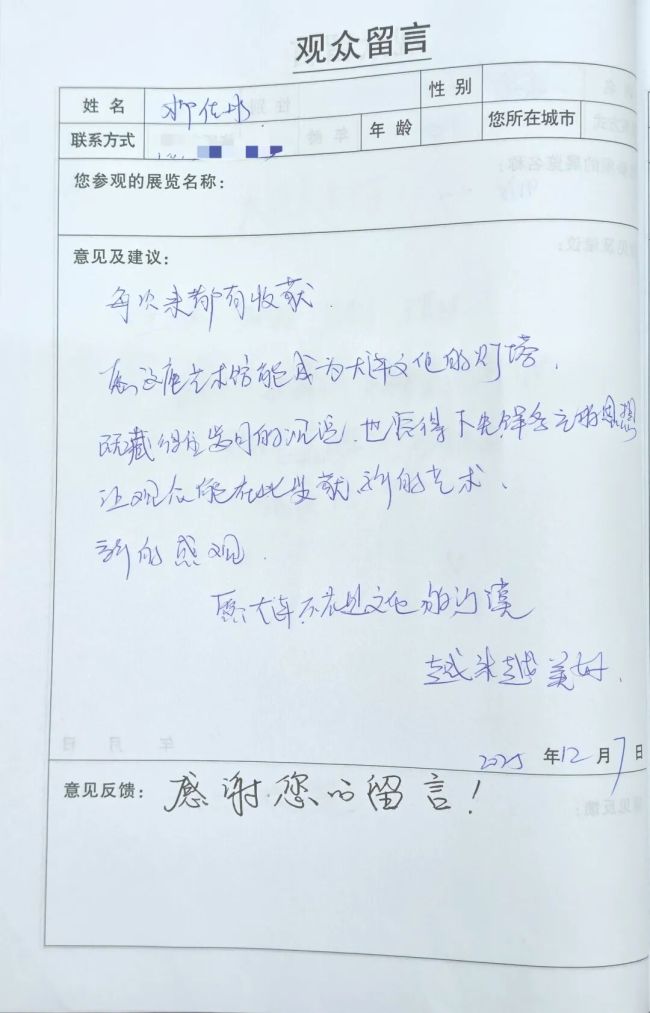 观众留言
姓名 柳佳
性别
联系方式
年龄
您所在城市
您参观的展览名称：
意见及建议：
每次来都有收获.
愿这座艺术馆能成为大连文化的灯塔，
既藏得住岁月的沉淀，也容得下先锋多元的思想
让观众能在此收获新的艺术、
新的感观.
愿大连不在是文化的沙漠
越来越美好.
2025年12月7日
意见反馈：感谢您的留言！